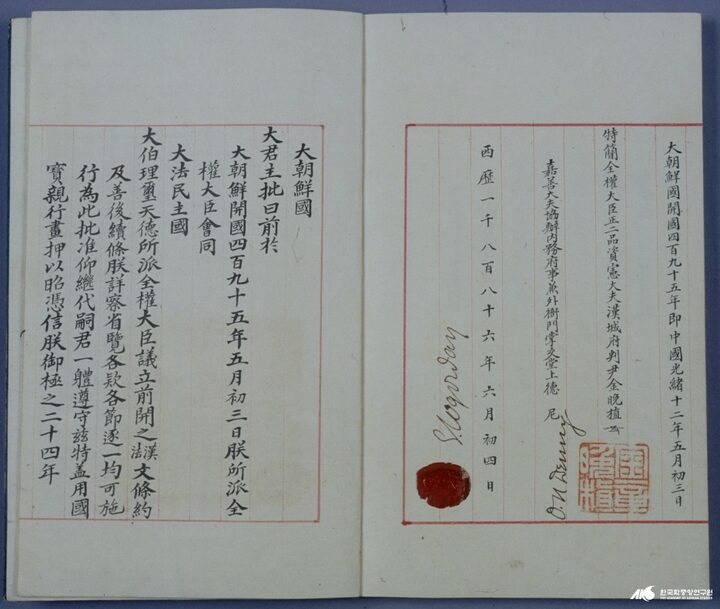 大朝鮮國開國四百九十五年即中國光緒十二年五月初三日
特簡全權大臣正二品資憲大夫漢城府判尹金晚植
嘉善大夫協辦內務府事兼外衙門掌交堂上德尼
O. N Denny
西歷一千八百八十六年六月初四日
Cogordan
大朝鮮國
大君主批曰前於
大朝鮮開國四百九十五年五月初三日朕所派全
權大臣會同
大法民主國
大伯理璽天德所派全權大臣議立前開之漢法文條約
及善後續條朕詳察省覽各款各節逐一均可施
行為此批准仰繼代嗣君一體遵守玆特蓋用國
寶親行畫押以昭憑信朕御極之二十四年
한국학중앙연구원